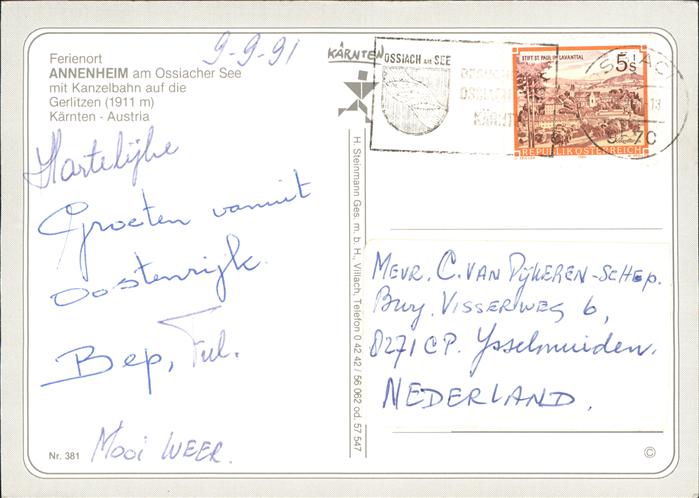 Ferienort
ANNENHEIM am Ossiacher See
mit Kanzelbahn auf die
Gerlitzen (1911 m)
Kärnten - Austria
9-9-91
Hartelijke
Groeten vanuit
Oostenrijk.
Bep,
Mooi WEER.
Nr. 381
H. Steinmann Ges. m. b. H., Villach, Telefon 0 42 42 / 56 062 od. 57 547
KÄRNTEN
OSSIACH AM SEE
STIFT ST. PAUL IM LAVANTTAL
5 S
REPUBLIK ÖSTERREICH
MEVR. C. VAN DIJKEREN-SCHEP.
Burg. VISSERWEG 6,
8271 CP. IJsselmuiden.
NEDERLAND.
©